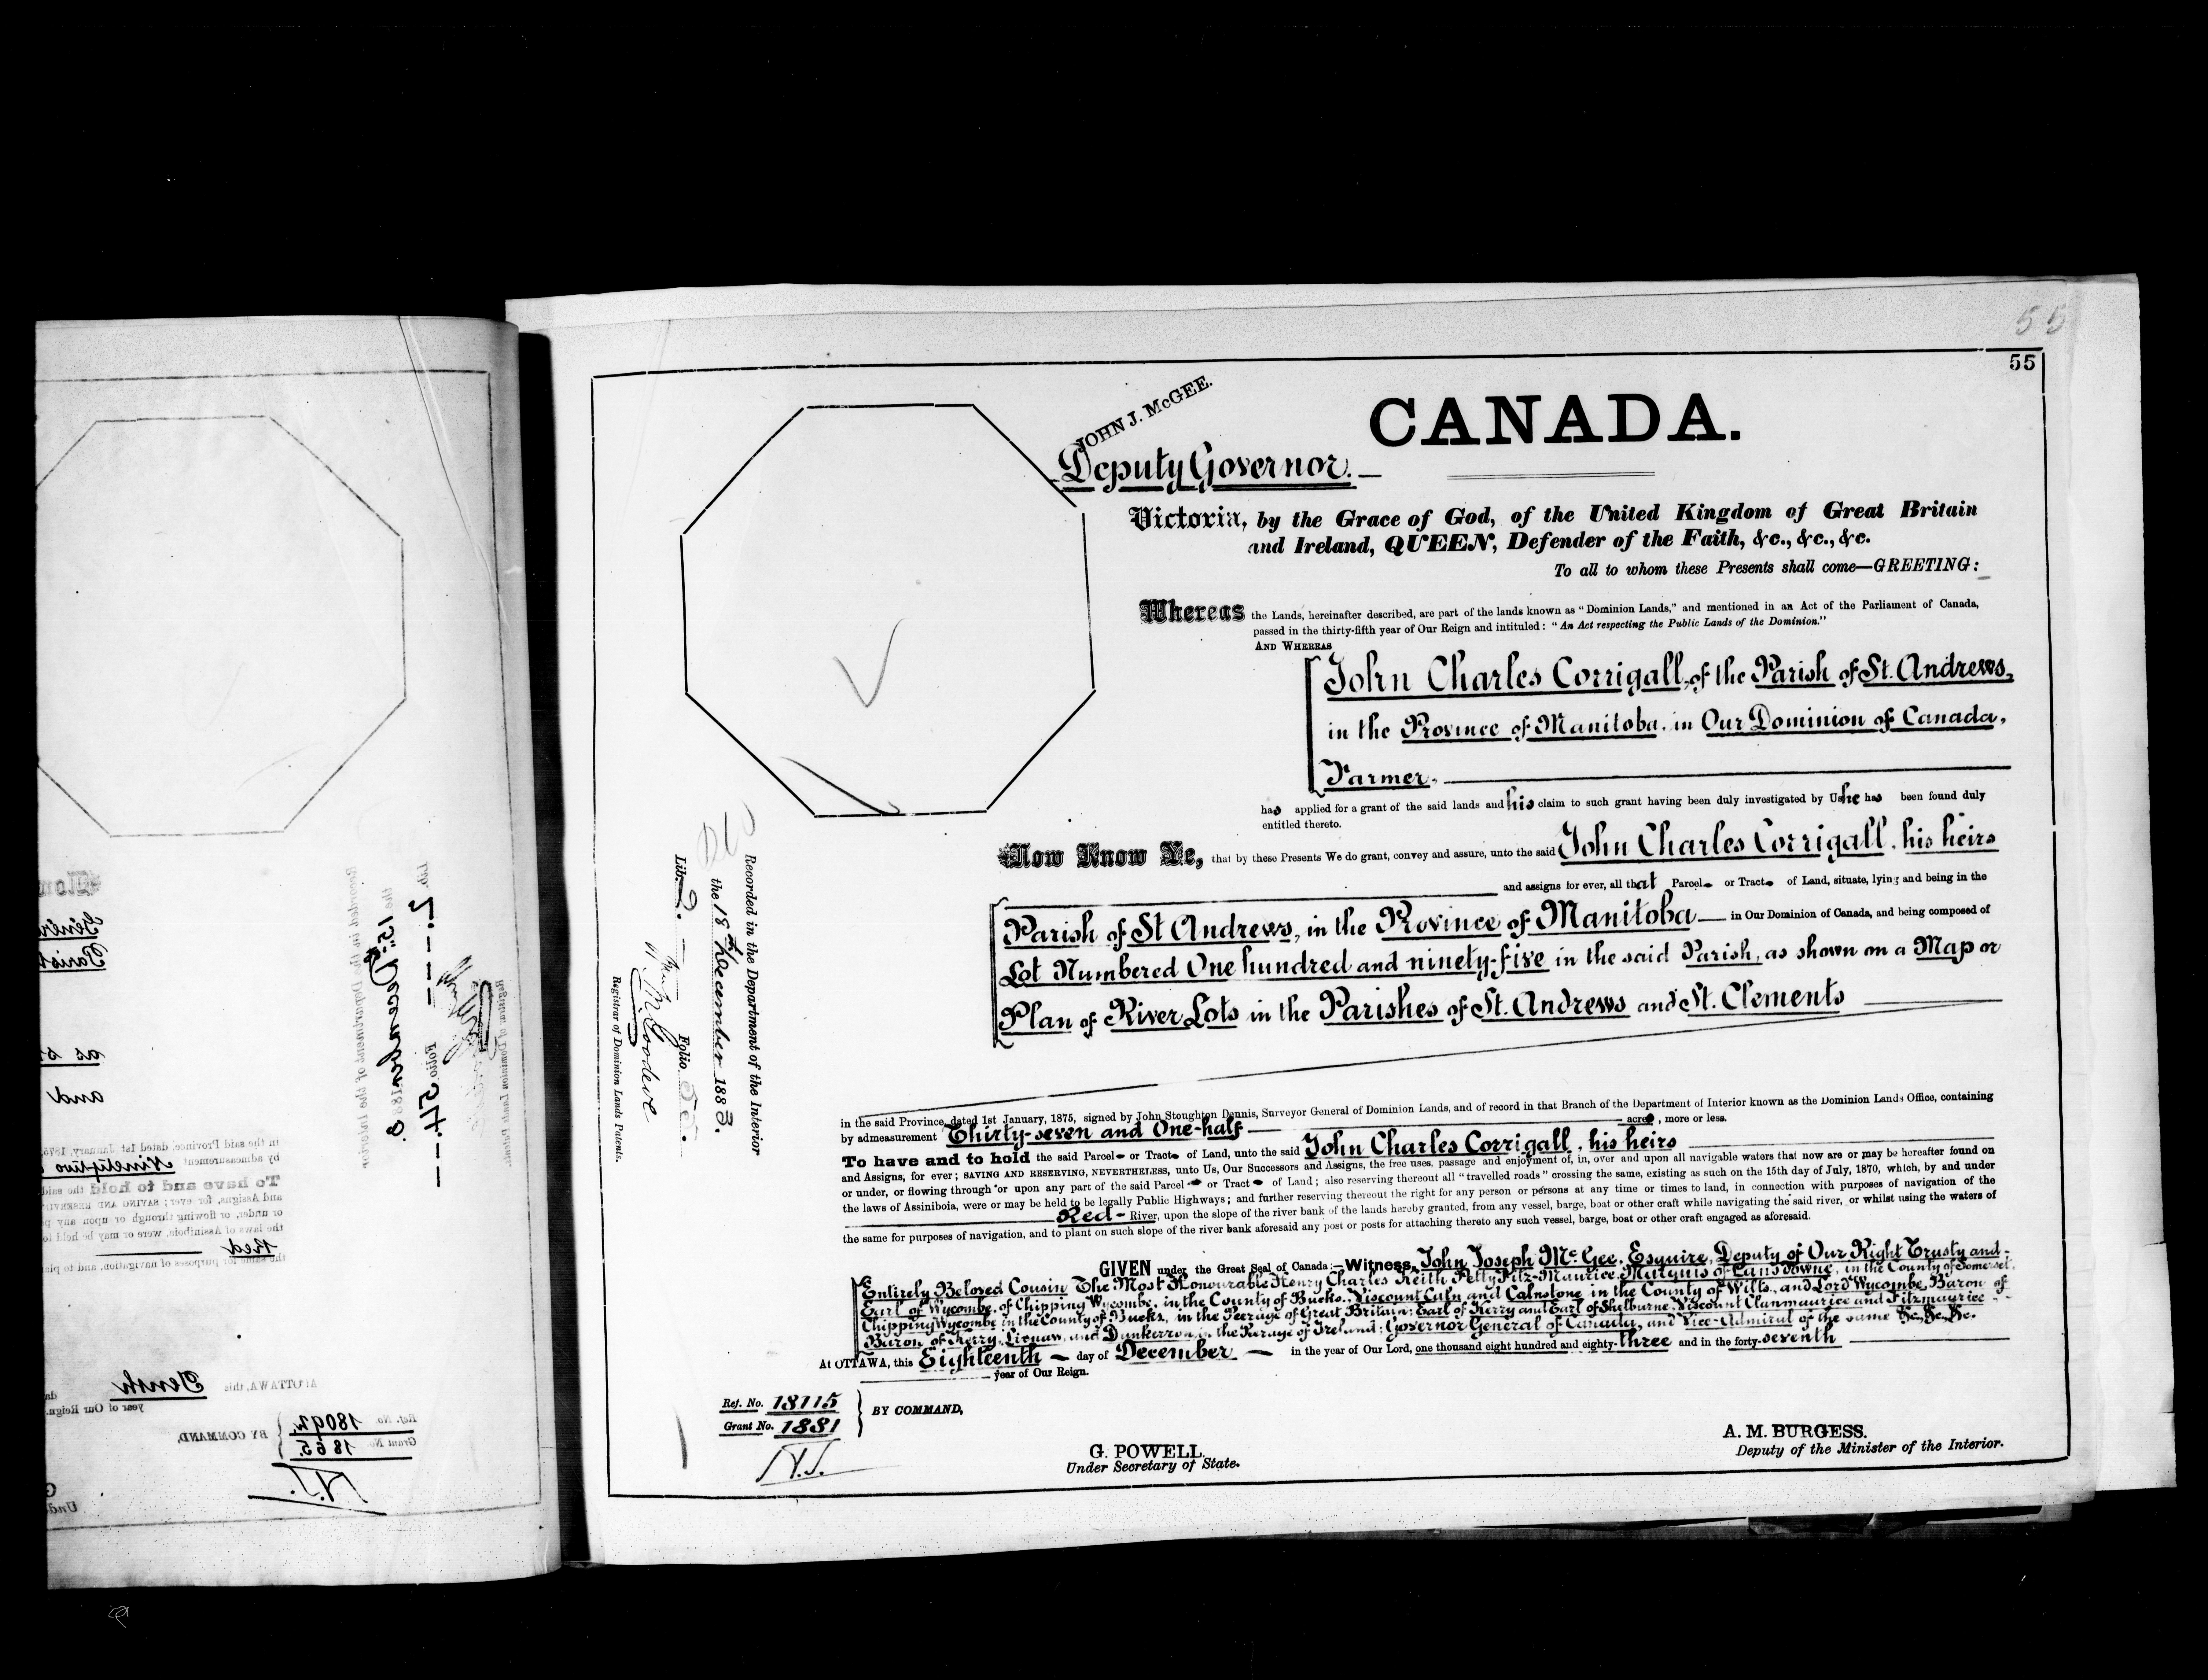 55
55
JOHN J. McGEE.
Deputy Governor.
CANADA.
Victoria, by the Grace of God, of the United Kingdom of Great Britain
and Ireland, QUEEN, Defender of the Faith, &c., &c., &c.
To all to whom these Presents shall come—GREETING:
Whereas the Lands, hereinafter described, are part of the lands known as "Dominion Lands," and mentioned in an Act of the Parliament of Canada,
passed in the thirty-fifth year of Our Reign and intituled: "An Act respecting the Public Lands of the Dominion."
AND WHEREAS
John Charles Corrigall, of the Parish of St. Andrews,
in the Province of Manitoba, in Our Dominion of Canada,
Farmer,
has applied for a grant of the said lands and his claim to such grant having been duly investigated by Us he has been found duly
entitled thereto.
Now Know Ye, that by these Presents We do grant, convey and assure, unto the said John Charles Corrigall, his heirs
and assigns for ever, all that Parcel or Tract of Land, situate, lying and being in the
Parish of St Andrews, in the Province of Manitoba — in Our Dominion of Canada, and being composed of
Lot Numbered One hundred and ninety-five in the said Parish, as shown on a Map or
Plan of River Lots in the Parishes of St. Andrews and St. Clements
in the said Province, dated 1st January, 1875, signed by John Stoughton Dennis, Surveyor General of Dominion Lands, and of record in that Branch of the Department of Interior known as the Dominion Lands Office, containing
by admeasurement Thirty-seven and One-half — acres, more or less.
To have and to hold the said Parcel or Tract of Land, unto the said John Charles Corrigall, his heirs
and Assigns, for ever; SAVING AND RESERVING, NEVERTHELESS, unto Us, Our Successors and Assigns, the free uses, passage and enjoyment of, in, over and upon all navigable waters that now are or may be hereafter found on
or under, or flowing through or upon any part of the said Parcel or Tract of Land; also reserving thereout all "travelled roads" crossing the same, existing as such on the 15th day of July, 1870, which, by and under
the laws of Assiniboia, were or may be held to be legally Public Highways; and further reserving thereout the right for any person or persons at any time or times to land, in connection with purposes of navigation of the
Red — River, upon the slope of the river bank of the lands hereby granted, from any vessel, barge, boat or other craft while navigating the said river, or whilst using the waters of
the same for purposes of navigation, and to plant on such slope of the river bank aforesaid any post or posts for attaching thereto any such vessel, barge, boat or other craft engaged as aforesaid.
GIVEN under the Great Seal of Canada:—Witness, John Joseph McGee, Esquire, Deputy of Our Right Trusty and
Entirely Beloved Cousin The Most Honourable Henry Charles Keith Petty Fitz-Maurice, Marquis of Lansdowne, in the County of Somerset,
Earl of Wycombe, of Chipping Wycombe, in the County of Bucks, Viscount Caln and Calnstone in the County of Wilts, and Lord Wycombe, Baron of
Chipping Wycombe in the County of Bucks, in the Peerage of Great Britain; Earl of Kerry and Earl of Shelburne, Viscount Clanmaurice and Fitzmaurice
Baron of Kerry, Lixnaw, and Dunkerron, in the Peerage of Ireland; Governor General of Canada, and Vice-Admiral of the same &c. &c. &c.
At OTTAWA, this Eighteenth — day of December — in the year of Our Lord, one thousand eight hundred and eighty-three and in the forty-seventh
year of Our Reign.
Ref. No. 18115
Grant No. 1881
BY COMMAND,
G. POWELL.
Under Secretary of State.
A. M. BURGESS.
Deputy of the Minister of the Interior.
Recorded in the Department of the Interior
the 18th December 1883.
Lib. 2. — Folio 55.
Registrar of Dominion Lands Patents.
Recorded in the Department of the Interior
the 15th December 1883
Lib. 2. Folio 54.
Registrar of Dominion Lands Patents.
in the said Province, dated 1st January, 1875
by admeasurement Ninety two
To have and to hold the said
and Assigns, for ever; SAVING AND RESERVING
or under, or flowing through or upon any p
the laws of Assiniboia, were or may be held to
Red
the same for purposes of navigation, and to pla
At OTTAWA, this Tenth da
year of Our Reign.
Ref. No. 18092
Grant No. 1865.
BY COMMAND,